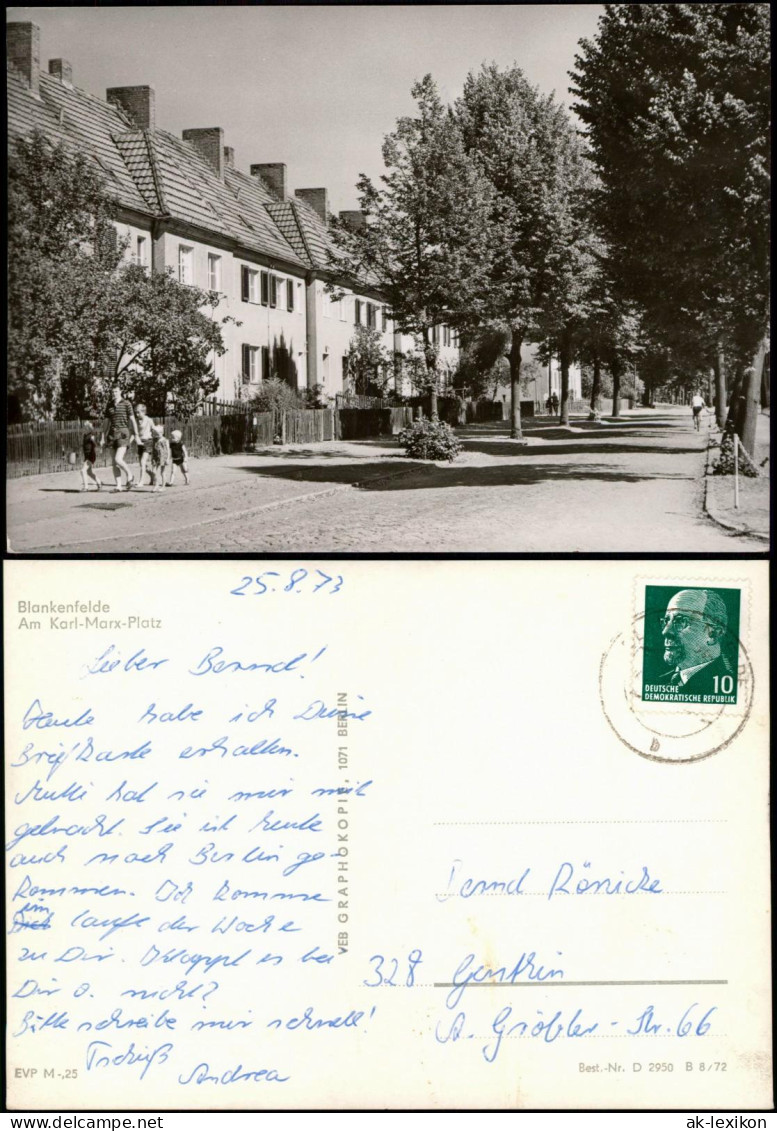 25.8.73
Blankenfelde
Am Karl-Marx-Platz
Lieber Bernd!
Heute habe ich Deine
Briefkarte erhalten.
Mutti hat sie mir mit
gebracht. Sie ist heute
auch nach Berlin ge-
kommen. Ich komme
im laufe der Woche
zu Dir. Klappt es bei
Dir o. nicht?
Bitte schreibe mir schnell!
Tschüß
Andrea
EVP M -,25
VEB GRAPHOKOPIE, 1071 BERLIN
DEUTSCHE
DEMOKRATISCHE REPUBLIK
10
b
Bernd Rönicke
328 Genthin
A. Gröbler-Str. 66
Best.-Nr. D 2950 B 8/72
ak-lexikon